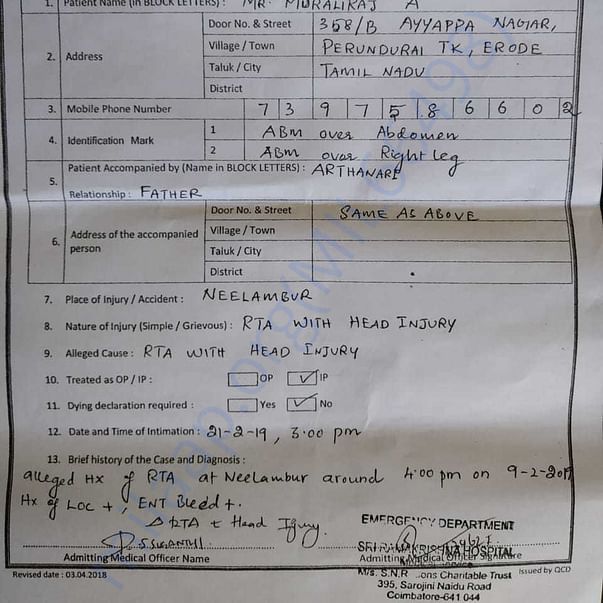 1. Patient Name (in BLOCK LETTERS) : MR. MURALIRAJ A
2. Address
Door No. & Street 358/B AYYAPPA NAGAR,
Village / Town PERUNDURAI TK, ERODE
Taluk / City TAMIL NADU
District
3. Mobile Phone Number 7 3 9 7 5 8 6 6 0 2
4. Identification Mark
1 ABM over Abdomen
2 ABM over Right leg
5. Patient Accompanied by (Name in BLOCK LETTERS) : ARTHANARI
Relationship : FATHER
6. Address of the accompanied person
Door No. & Street SAME AS ABOVE
Village / Town
Taluk / City
District
7. Place of Injury / Accident : NEELAMBUR
8. Nature of Injury (Simple / Grievous) : RTA WITH HEAD INJURY
9. Alleged Cause : RTA WITH HEAD INJURY
10. Treated as OP / IP : OP ✓ IP
11. Dying declaration required : Yes ✓ No
12. Date and Time of Intimation : 21-2-19, 3:00 pm
13. Brief history of the Case and Diagnosis :
alleged Hx of RTA at Neelambur around 4:00 pm on 9-2-2019
Hx of LOC +, ENT Bleed +.
Δ RTA c Head Injury
EMERGENCY DEPARTMENT
SRI RAMAKRISHNA HOSPITAL
Admitting Medical Officer Name
Admitting Medical Officer Signature
M/s. S.N.R Sons Charitable Trust
395, Sarojini Naidu Road
Coimbatore-641 044
Revised date : 03.04.2018
Issued by QCD